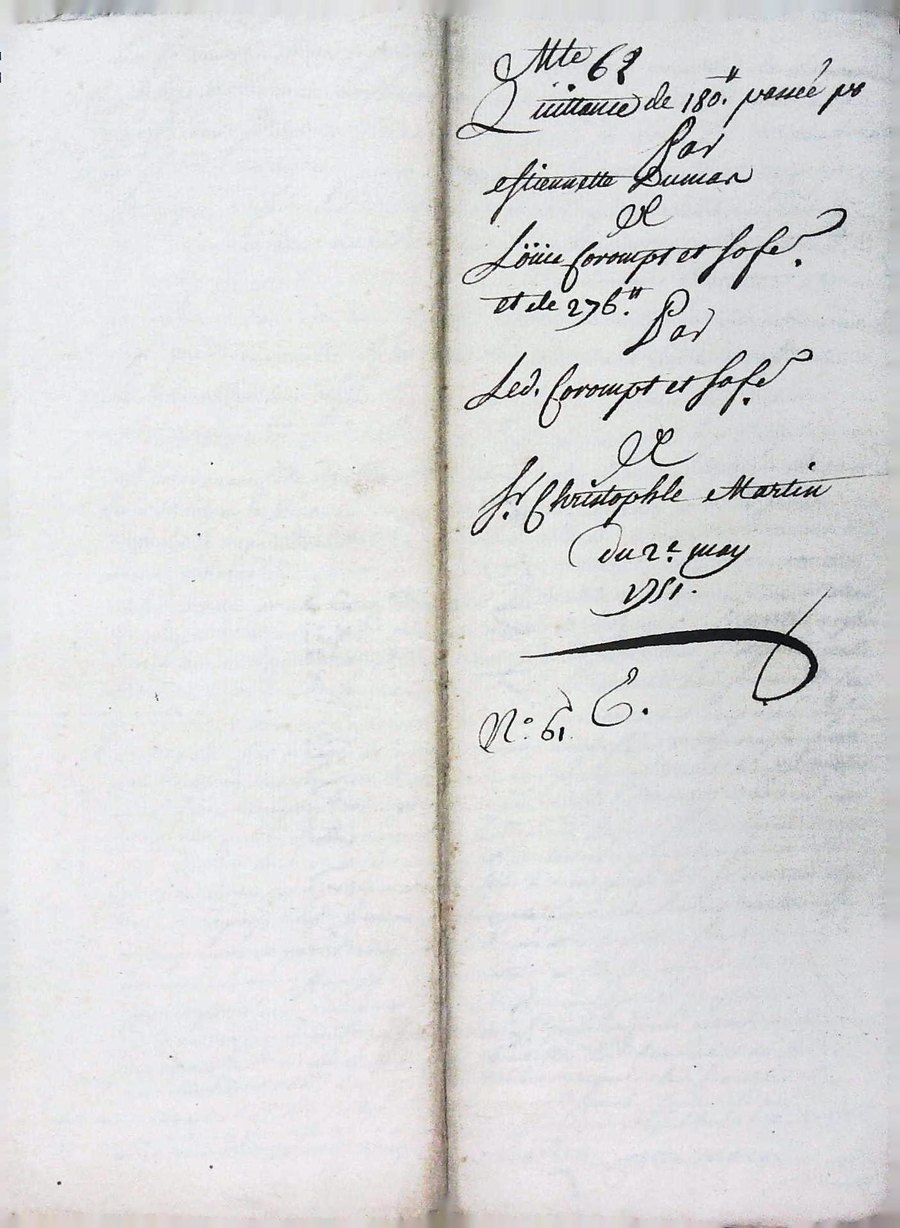 Mte 62
Quittance de 180.# passée po
Par
estiennette Dumas
A
Loüis Corompt et sa fe.
et de 276.#
Par
Led. Corompt et sa fe.
A
Sr. Christophle Martin
du 2e. may
1751.
N.º 61. C.